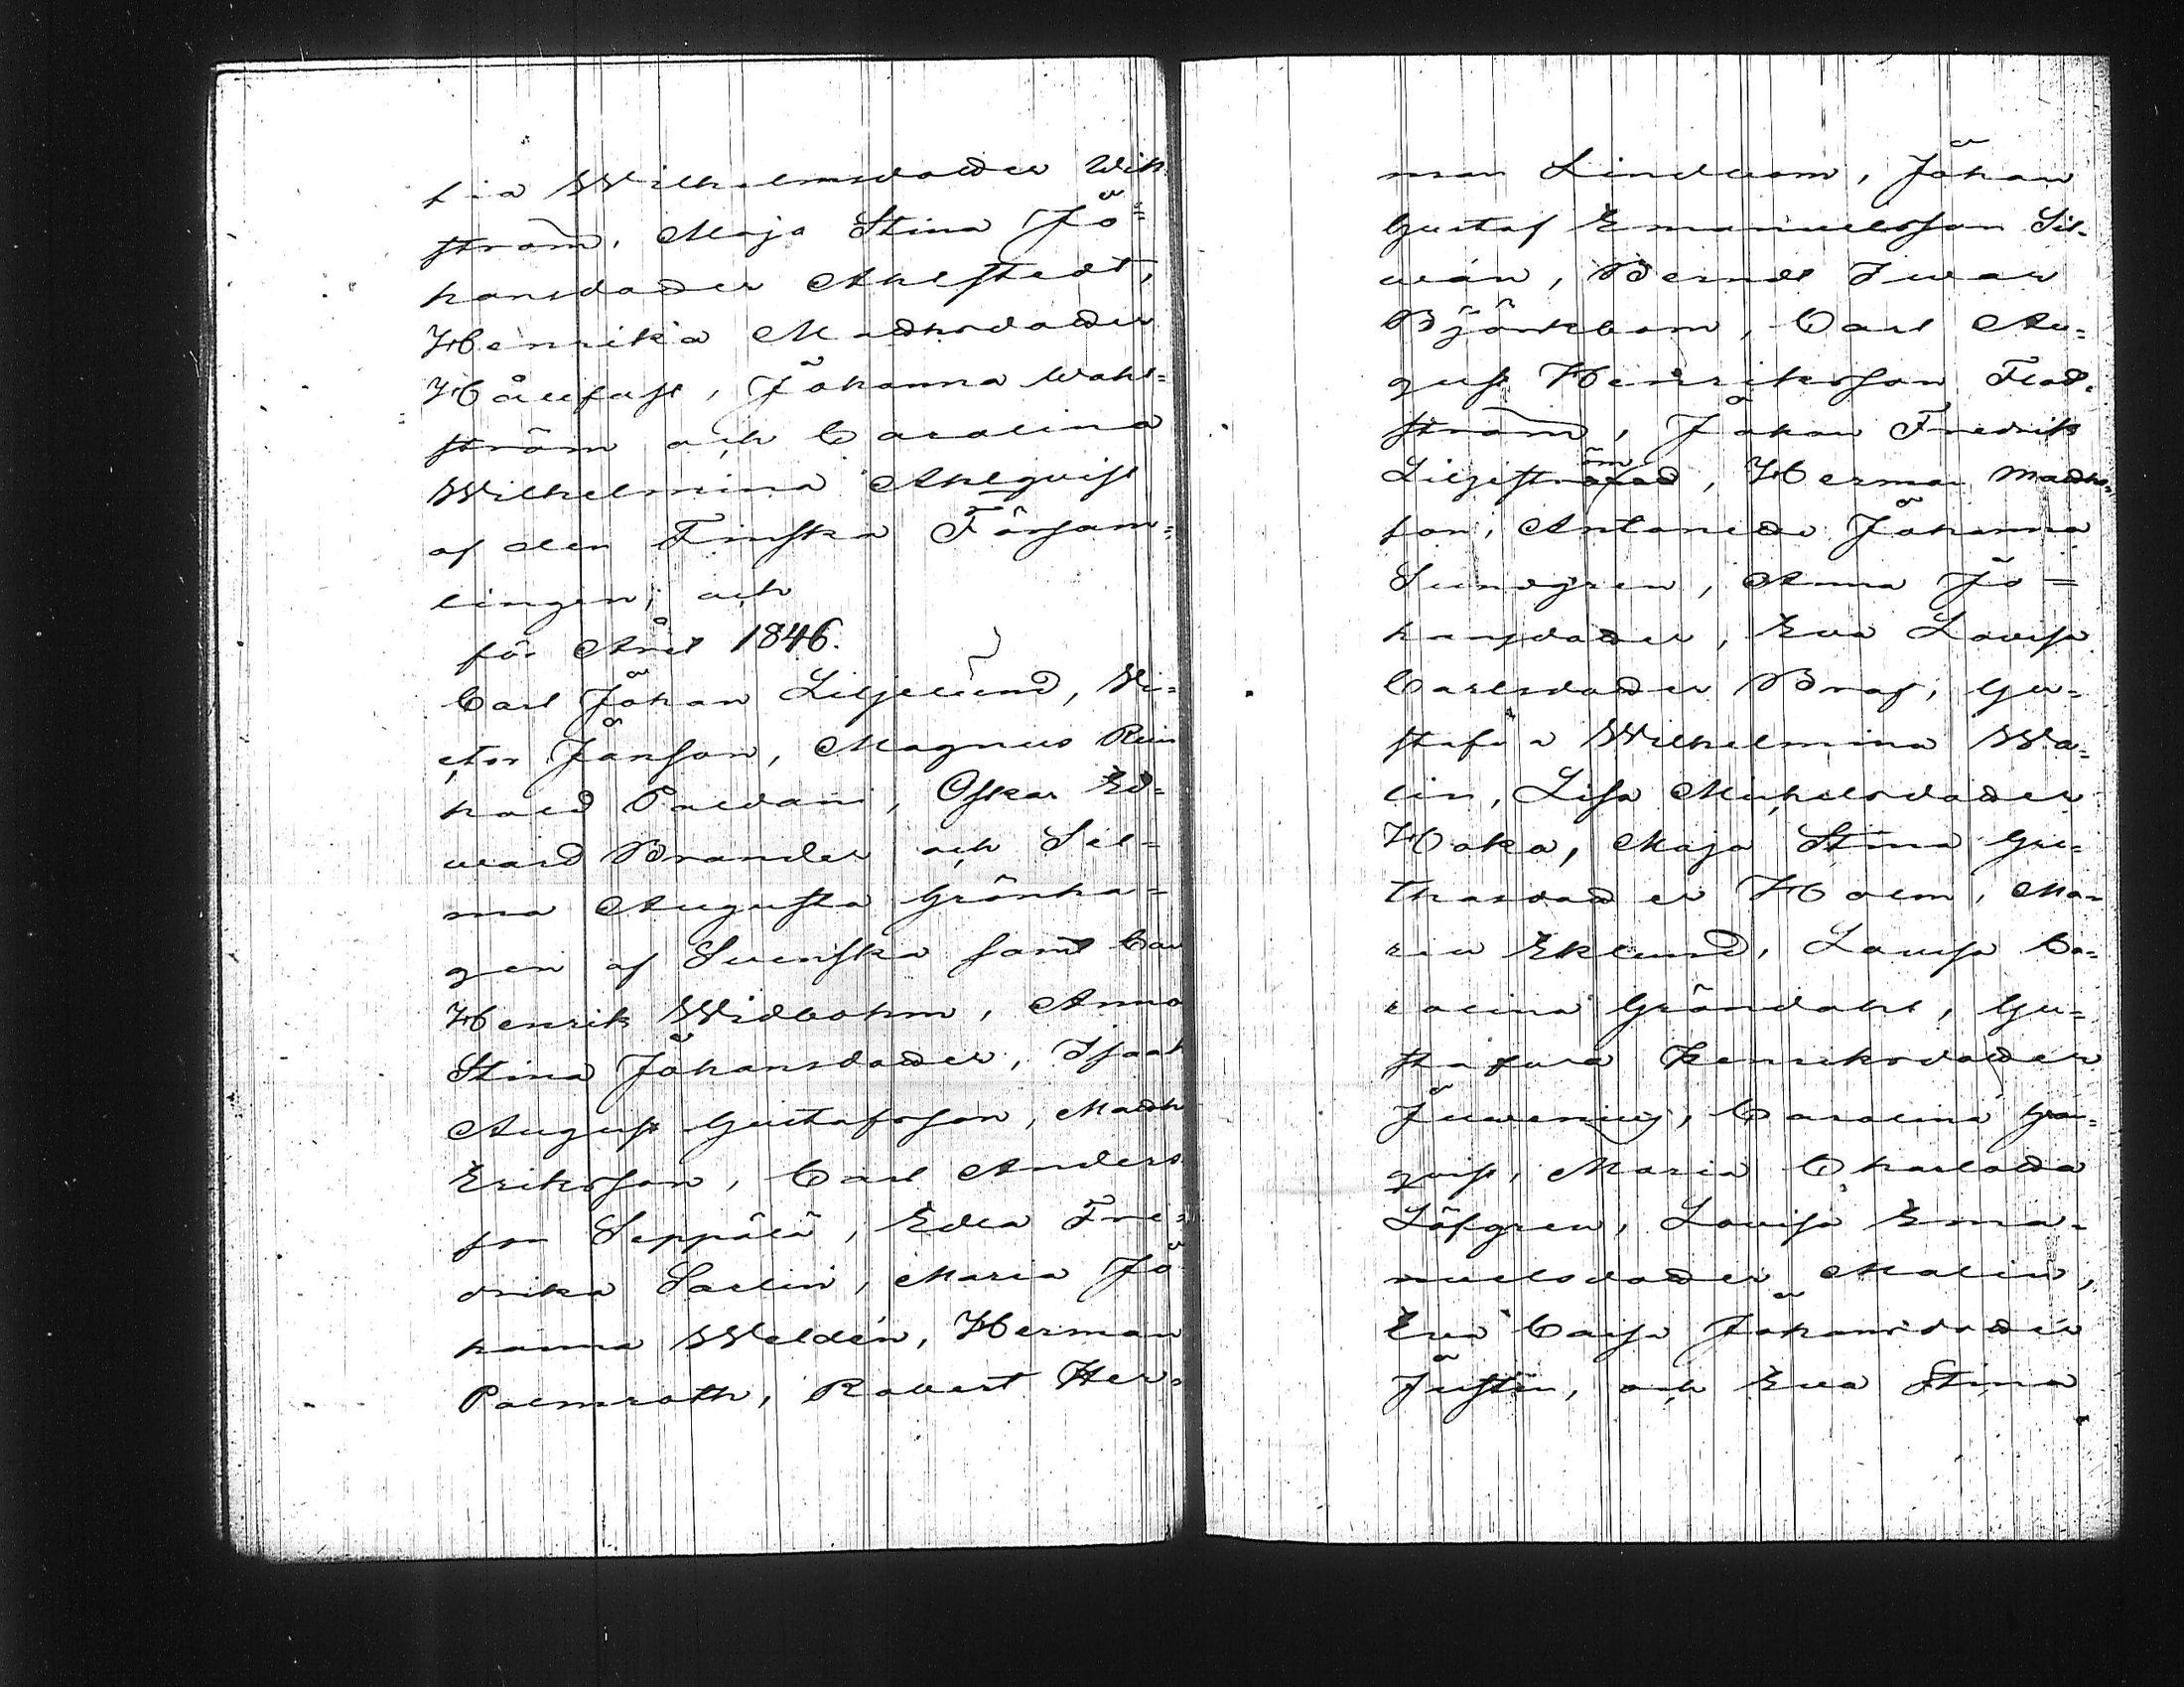 fia Wilhelmsdotter Wik
ström, Maja Stina Jo=
hansdotter Ahlstedt,
Henrika Mathsdotter
Hållfast, Johanna Wahl=
ström och Carolina
Wilhelmina Ahlqvist
af den Finska Försam=
lingen; och
för Året 1846.
Carl Johan Liljelund, Vi=
ctor Jonsson, Magnus Rein
hold Paldani, Oskar Ed=
vard Brander och Sel=
ma Augusta Grönha=
gen af Svenska samt Carl
Henrik Widbohm, Anna
Stina Johansdotter, Isaak
August Gustafsson, Math
Eriksson, Carl Anders
son Seppälä, Edla Fre=
drika Sarlin, Maria Jo
hanna Weldén, Herman
Palmroth, Robert Her=
man Lindbom, Johan
Gustaf Emanuelsson Sil=
wán, Bernd Iwar
Björkbom, Carl Au=
gust Henriksson Flod=
ström, Johan Fredrik
Liljeström, Herman Maths=
son, Antonetta Johanna
Sundgren, Anna Jo=
hansdotter, Eva Lovisa
Carlsdotter Braf, Gu=
stafva Wilhelmina Wa=
lin, Lisa Michelsdotter
Hoka, Maja Stina Gu=
Holm, Ma=
ria Eklund, Lovisa Ca=
rolina Gröndahl, Gu=
stafva Henriksdotter
Juvenius, Carolina Grön=
qvist, Maria Charlotta
Löfgren, Lovisa Ema=
nuelsdotter Malin,
Eva Caisa Johansdotter
Justin, och Eva Stina